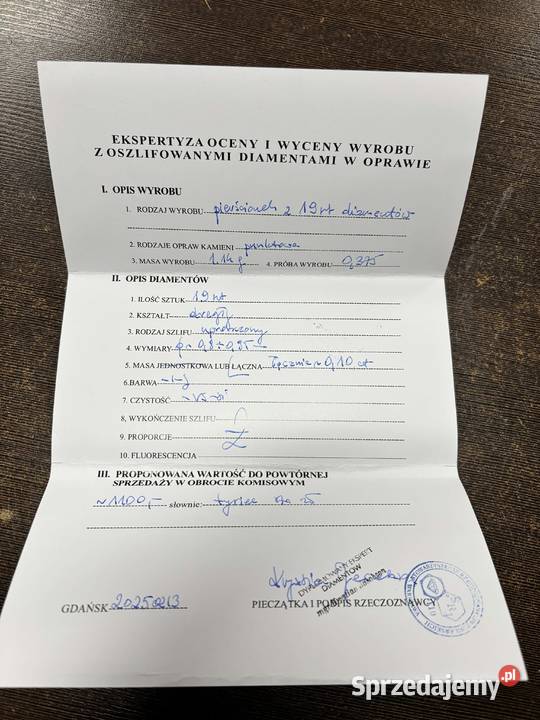 EKSPERTYZA OCENY I WYCENY WYROBU
Z OSZLIFOWANYMI DIAMENTAMI W OPRAWIE
I. OPIS WYROBU
1. RODZAJ WYROBU pierścionek z 19 szt diamentów
2. RODZAJE OPRAW KAMIENI punktowa
3. MASA WYROBU 1.1g 4. PRÓBA WYROBU 0,375
II. OPIS DIAMENTÓW
1. ILOŚĆ SZTUK 19 szt
2. KSZTAŁT okrągły
3. RODZAJ SZLIFU uproszczony
4. WYMIARY
5. MASA JEDNOSTKOWA LUB ŁĄCZNA łącznie ~ 0,10 ct
6.BARWA
7. CZYSTOŚĆ
8, WYKOŃCZENIE SZLIFU
9. PROPORCJE
10. FLUORESCENCJA
III. PROPONOWANA WARTOŚĆ DO POWTÓRNEJ
SPRZEDAŻY W OBROCIE KOMISOWYM
~1100,- słownie: tysiąc sto zł
DYPLOMOWANY EKSPERT
DIAMENTÓW
GDAŃSK PIECZĄTKA I PODPIS RZECZOZNAWCY
Sprzedajemy.pl